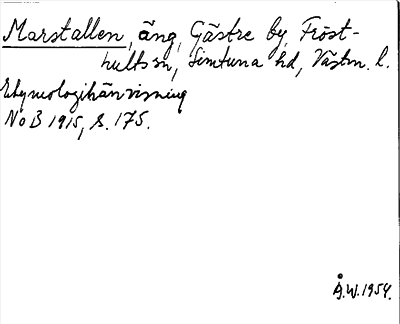 Marstallen, äng, Gästre by, Fröst-
hults sn, Simtuna hd, Västm. l.
Etymologihänvisning
NoB 1915, s. 175.
Å.W. 1954.